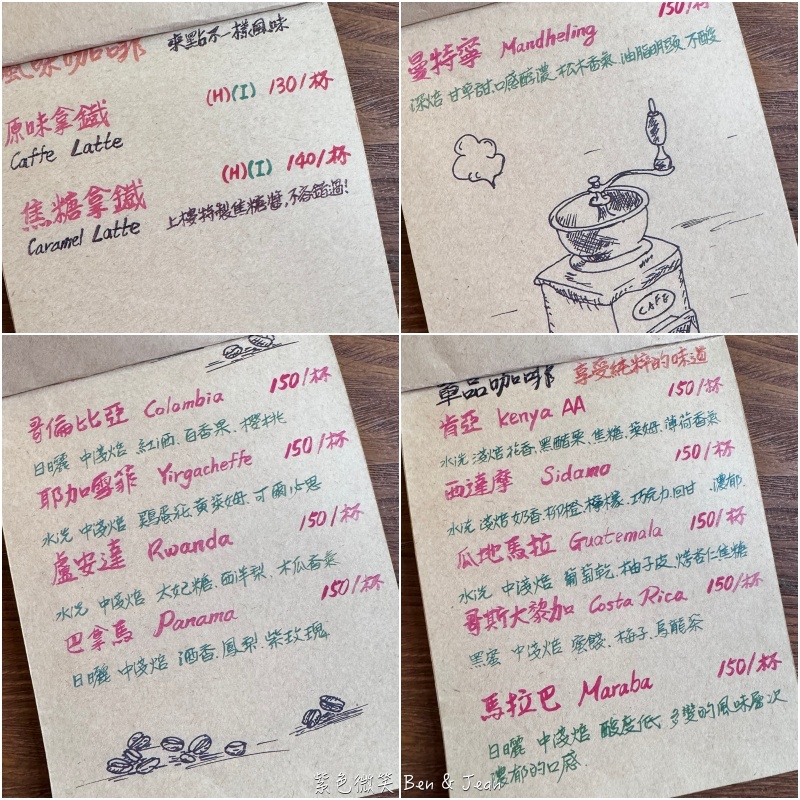 風味咖啡 來點不一樣風味
原味拿鐵 (H)(I) 130/杯
Caffe Latte
焦糖拿鐵 (H)(I) 140/杯
Caramel Latte 上樓特製焦糖醬,不容錯過!
150/杯
曼特寧 Mandheling
深焙 甘草甜.口感醇濃.松木香氣.油脂明顯 不酸
CAFE
哥倫比亞 Colombia 150/杯
日曬 中淺焙 紅酒.百香果.櫻桃
耶加雪菲 Yirgacheffe 150/杯
水洗 中淺焙 雞蛋花.黃萊姆.可爾必思
盧安達 Rwanda 150/杯
水洗 中淺焙 太妃糖.西洋梨.木瓜香氣
巴拿馬 Panama 150/杯
日曬 中淺焙 酒香.鳳梨.紫玫瑰
單品咖啡 享受純粹的味道
肯亞 Kenya AA 150/杯
水洗 淺焙 花香.黑醋栗.焦糖.萊姆.薄荷香氣
西達摩 Sidamo 150/杯
水洗 淺焙 奶香.柳橙.檸檬.巧克力.回甘.濃郁
瓜地馬拉 Guatemala 150/杯
水洗 中淺焙 葡萄乾.柚子皮.烤杏仁焦糖
哥斯大黎加 Costa Rica 150/杯
黑蜜 中淺焙 蜜餞.梅子.烏龍茶
馬拉巴 Maraba 150/杯
日曬 中淺焙 酸度低 多變的風味層次
濃郁的口感.
紫色微笑 Ben & Jean